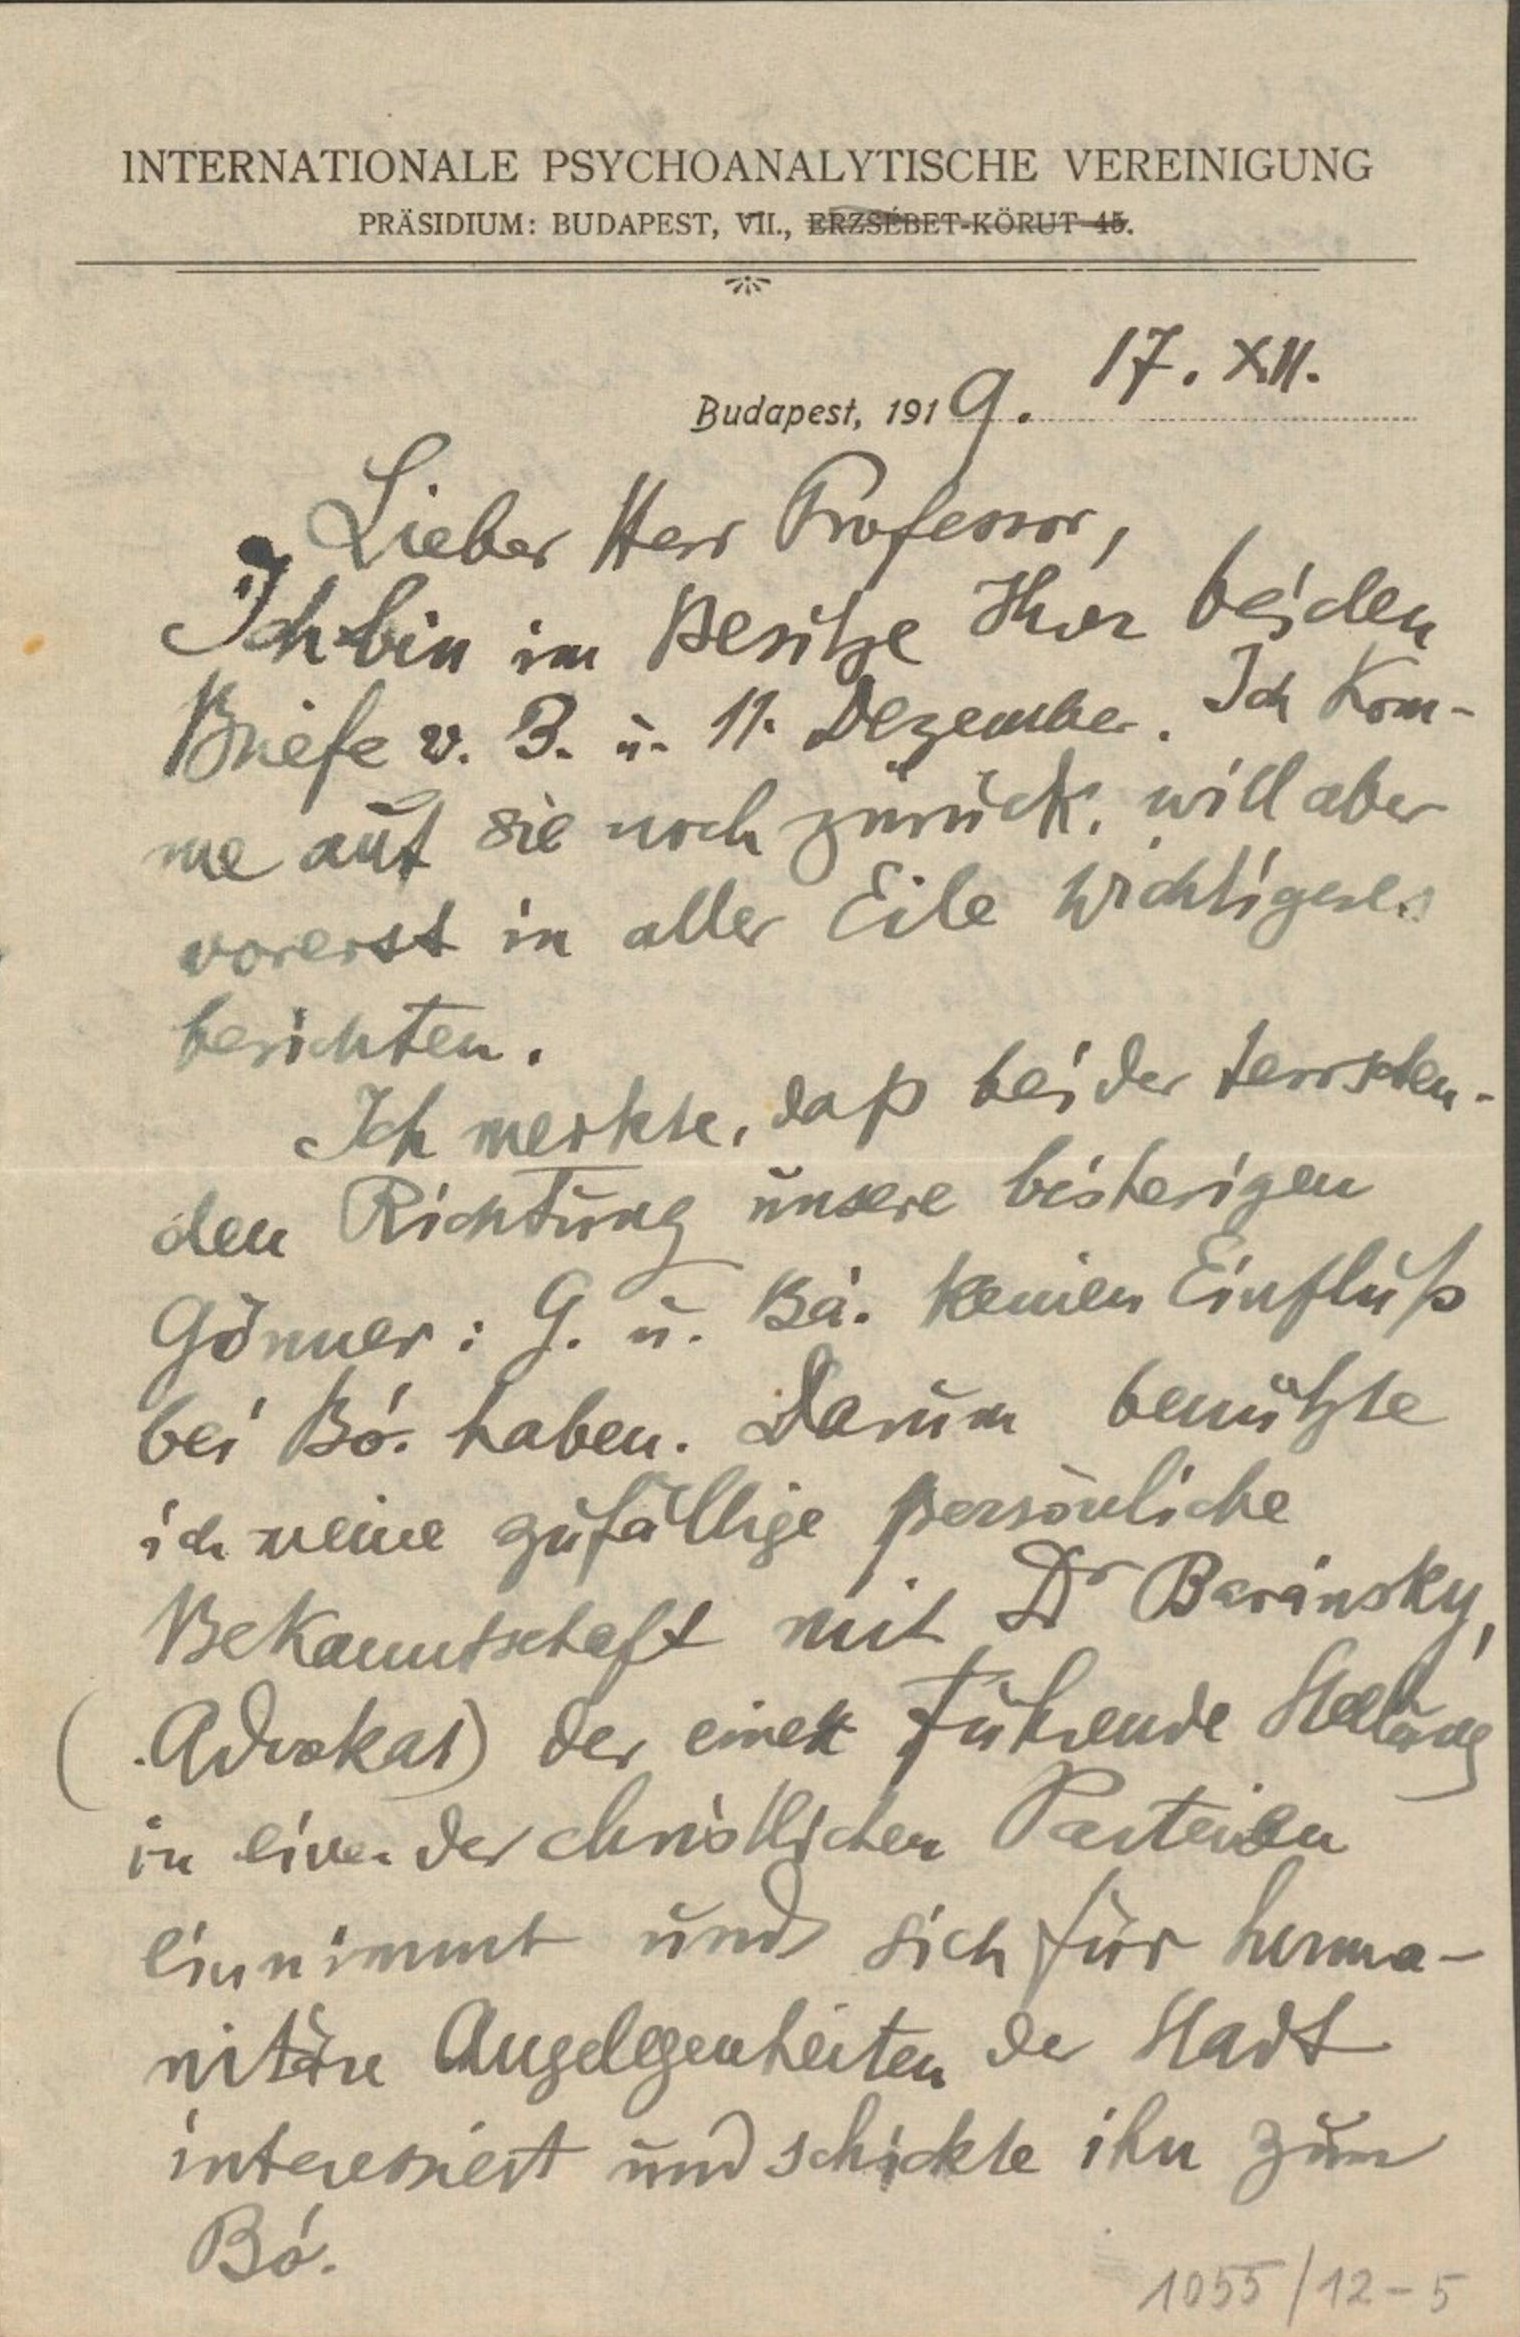 INTERNATIONALE PSYCHOANALYTISCHE VEREINIGUNG
PRÄSIDIUM: BUDAPEST, VII., ERZSÉBET-KÖRUT 45.
Budapest, 1919. 17. XII.
Lieber Herr Professor,
Ich bin im Besitze Ihrer beiden
Briefe v. 3. u. 11. Dezember. Ich kom-
me auf sie noch zurück, will aber
vorerst in aller Eile wichtigeres
berichten.
Ich merkte, daß bei der herrschen-
den Richtung unsere bisherigen
Gönner: G. u. Bá. keinen Einfluß
bei Bó. haben. Darum benützte
ich meine zufällige persönliche
Bekanntschaft mit Dr Baránsky,
(Advokat) der eine führende Stellung
in einer der christlichen Parteien
einnimmt und sich für huma-
nitäre Angelegenheiten der Stadt
interessiert und schickte ihn zum
Bó.
1055/12-5